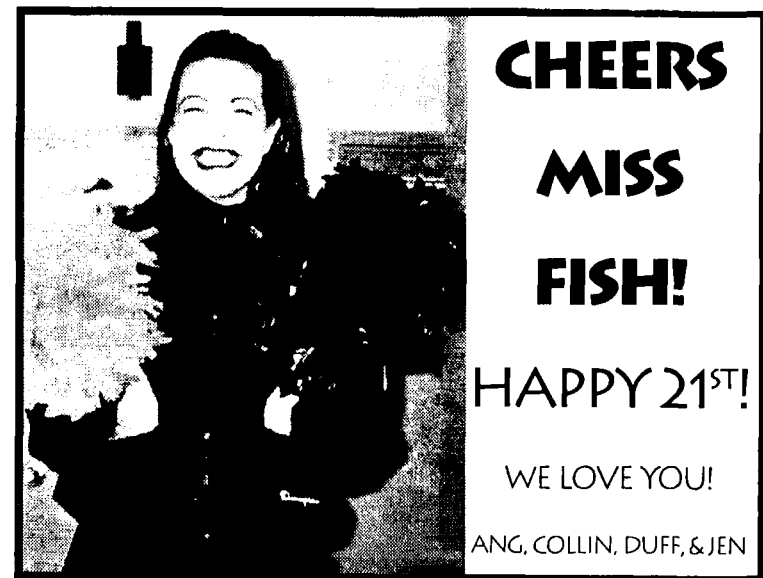 CHEERS
MISS
FISH!
HAPPY 21ST!
WE LOVE YOU!
ANG, COLLIN, DUFF, & JEN